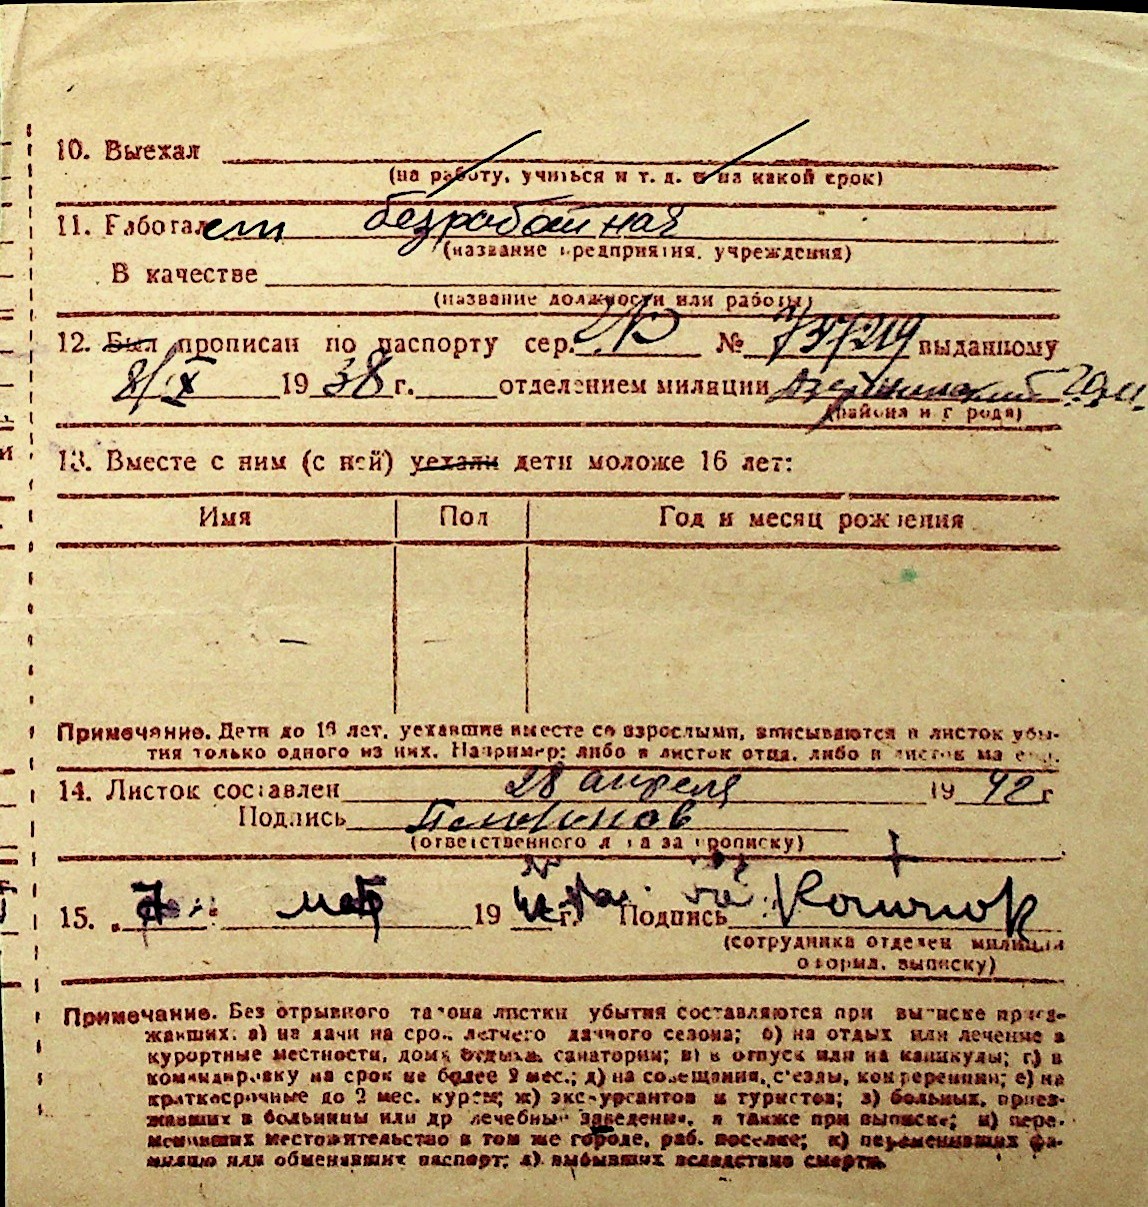 10. Выехал
(на работу, учиться и т. д. и на какой срок)
11. Работал безработная
(название предприятия, учреждения)
В качестве
(название должности или работы)
12. Был прописан по паспорту сер. № выданному
8/X 1938 г. отделением милиции
(района и города)
13. Вместе с ним (с ней) уехали дети моложе 16 лет:
Имя Пол Год и месяц рождения
— —
Примечание. Дети до 16 лет, уехавшие вместе со взрослыми, вписываются в листок убы-
тия только одного из них. Например: либо в листок отца, либо в листок матери.
14. Листок составлен 28 апреля 1942 г
Подпись
(ответственного лица за прописку)
15. мая 1942 г. Подпись
(сотрудника отделен милиции
оформл. выписку)
Примечание. Без отрывного талона листки убытия составляются при выписке приез-
жавших: а) на дачи на срок летнего дачного сезона; б) на отдых или лечение в
курортные местности, дома отдыха, санатории; в) в отпуск или на каникулы; г) в
командировку на срок не более 2 мес.; д) на совещания, съезды, конференции; е) на
краткосрочные до 2 мес. курсы; ж) экскурсантов и туристов; з) больных, приез-
жавших в больницы или др лечебные заведения, а также при выписке; и) пере-
менивших местожительство в том же городе, раб. поселке; к) переменивших фа-
милию или обменявших паспорт; л) выбывших вследствие смерти.